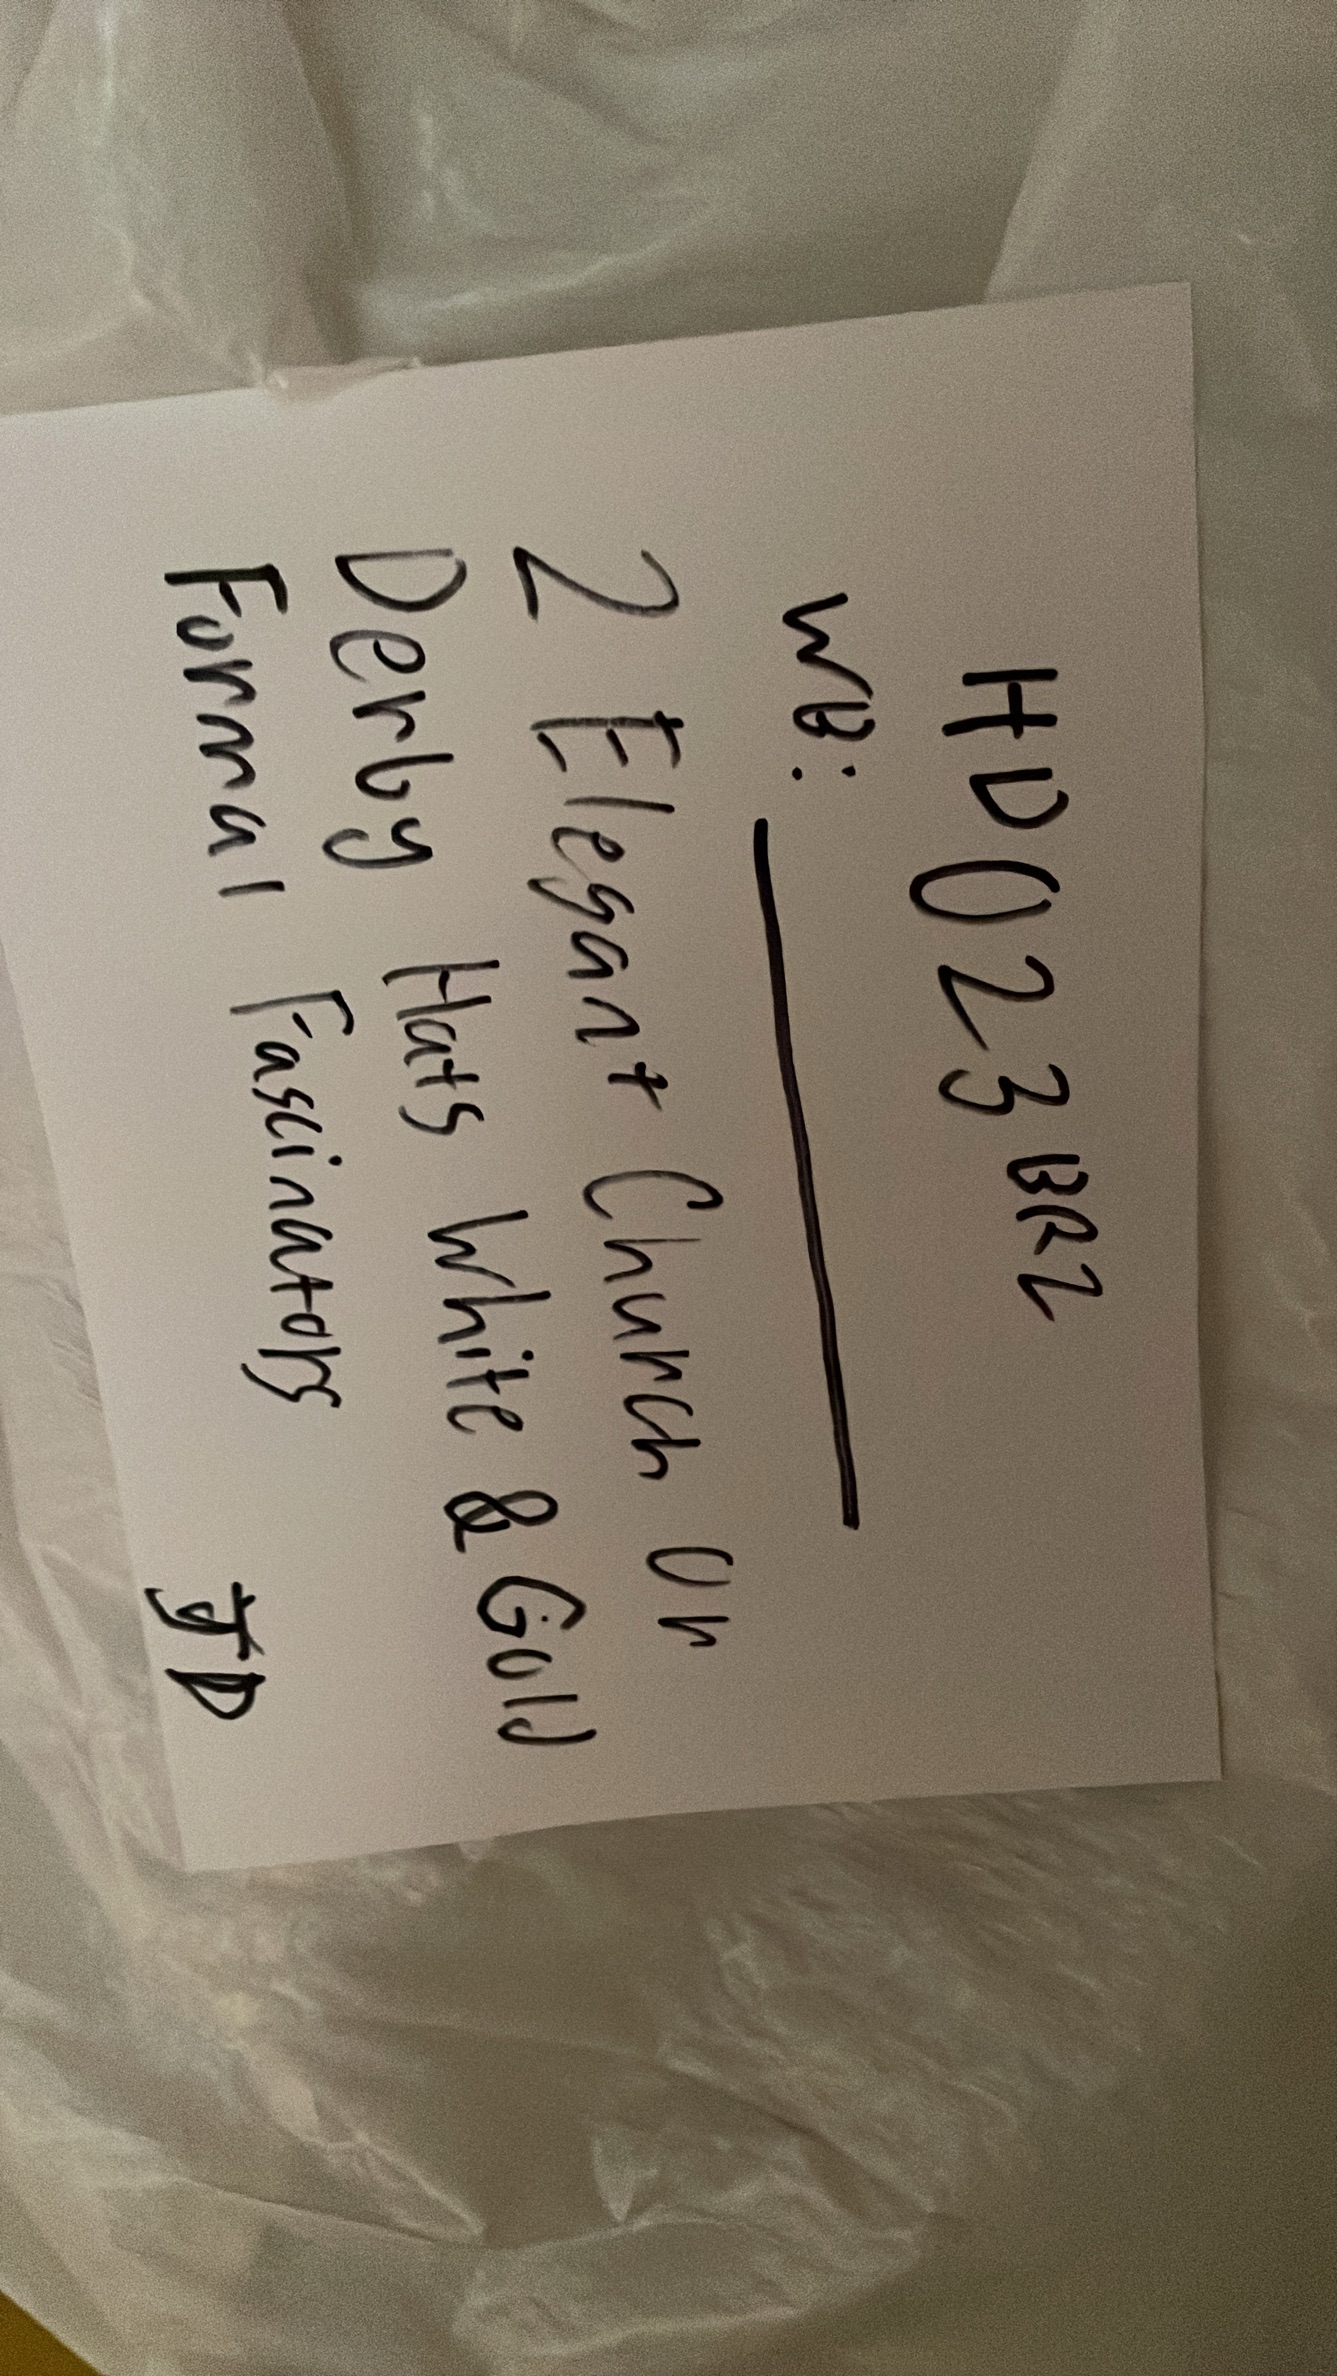 HD023BR2
WB:
2 Elegant Church Or
Derby Hats White & Gold
Formal Fascinators
JD